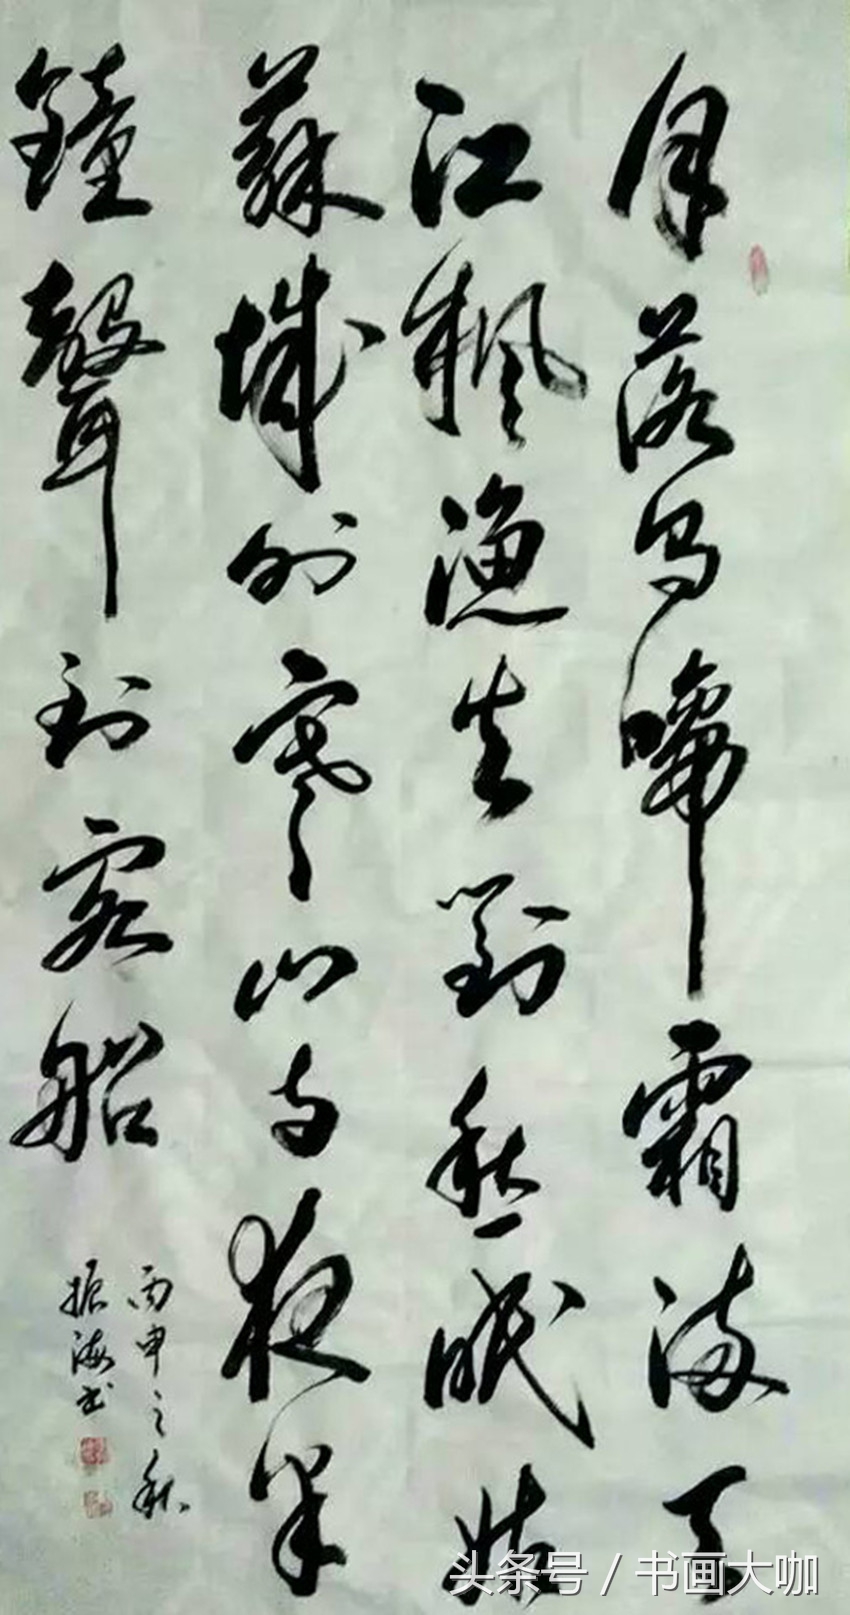 月落烏啼霜滿天
江楓漁火對愁眠姑
蘇城外寒山寺夜半
鐘聲到客船
丙申之秋
振海书
头条号 / 书画大咖